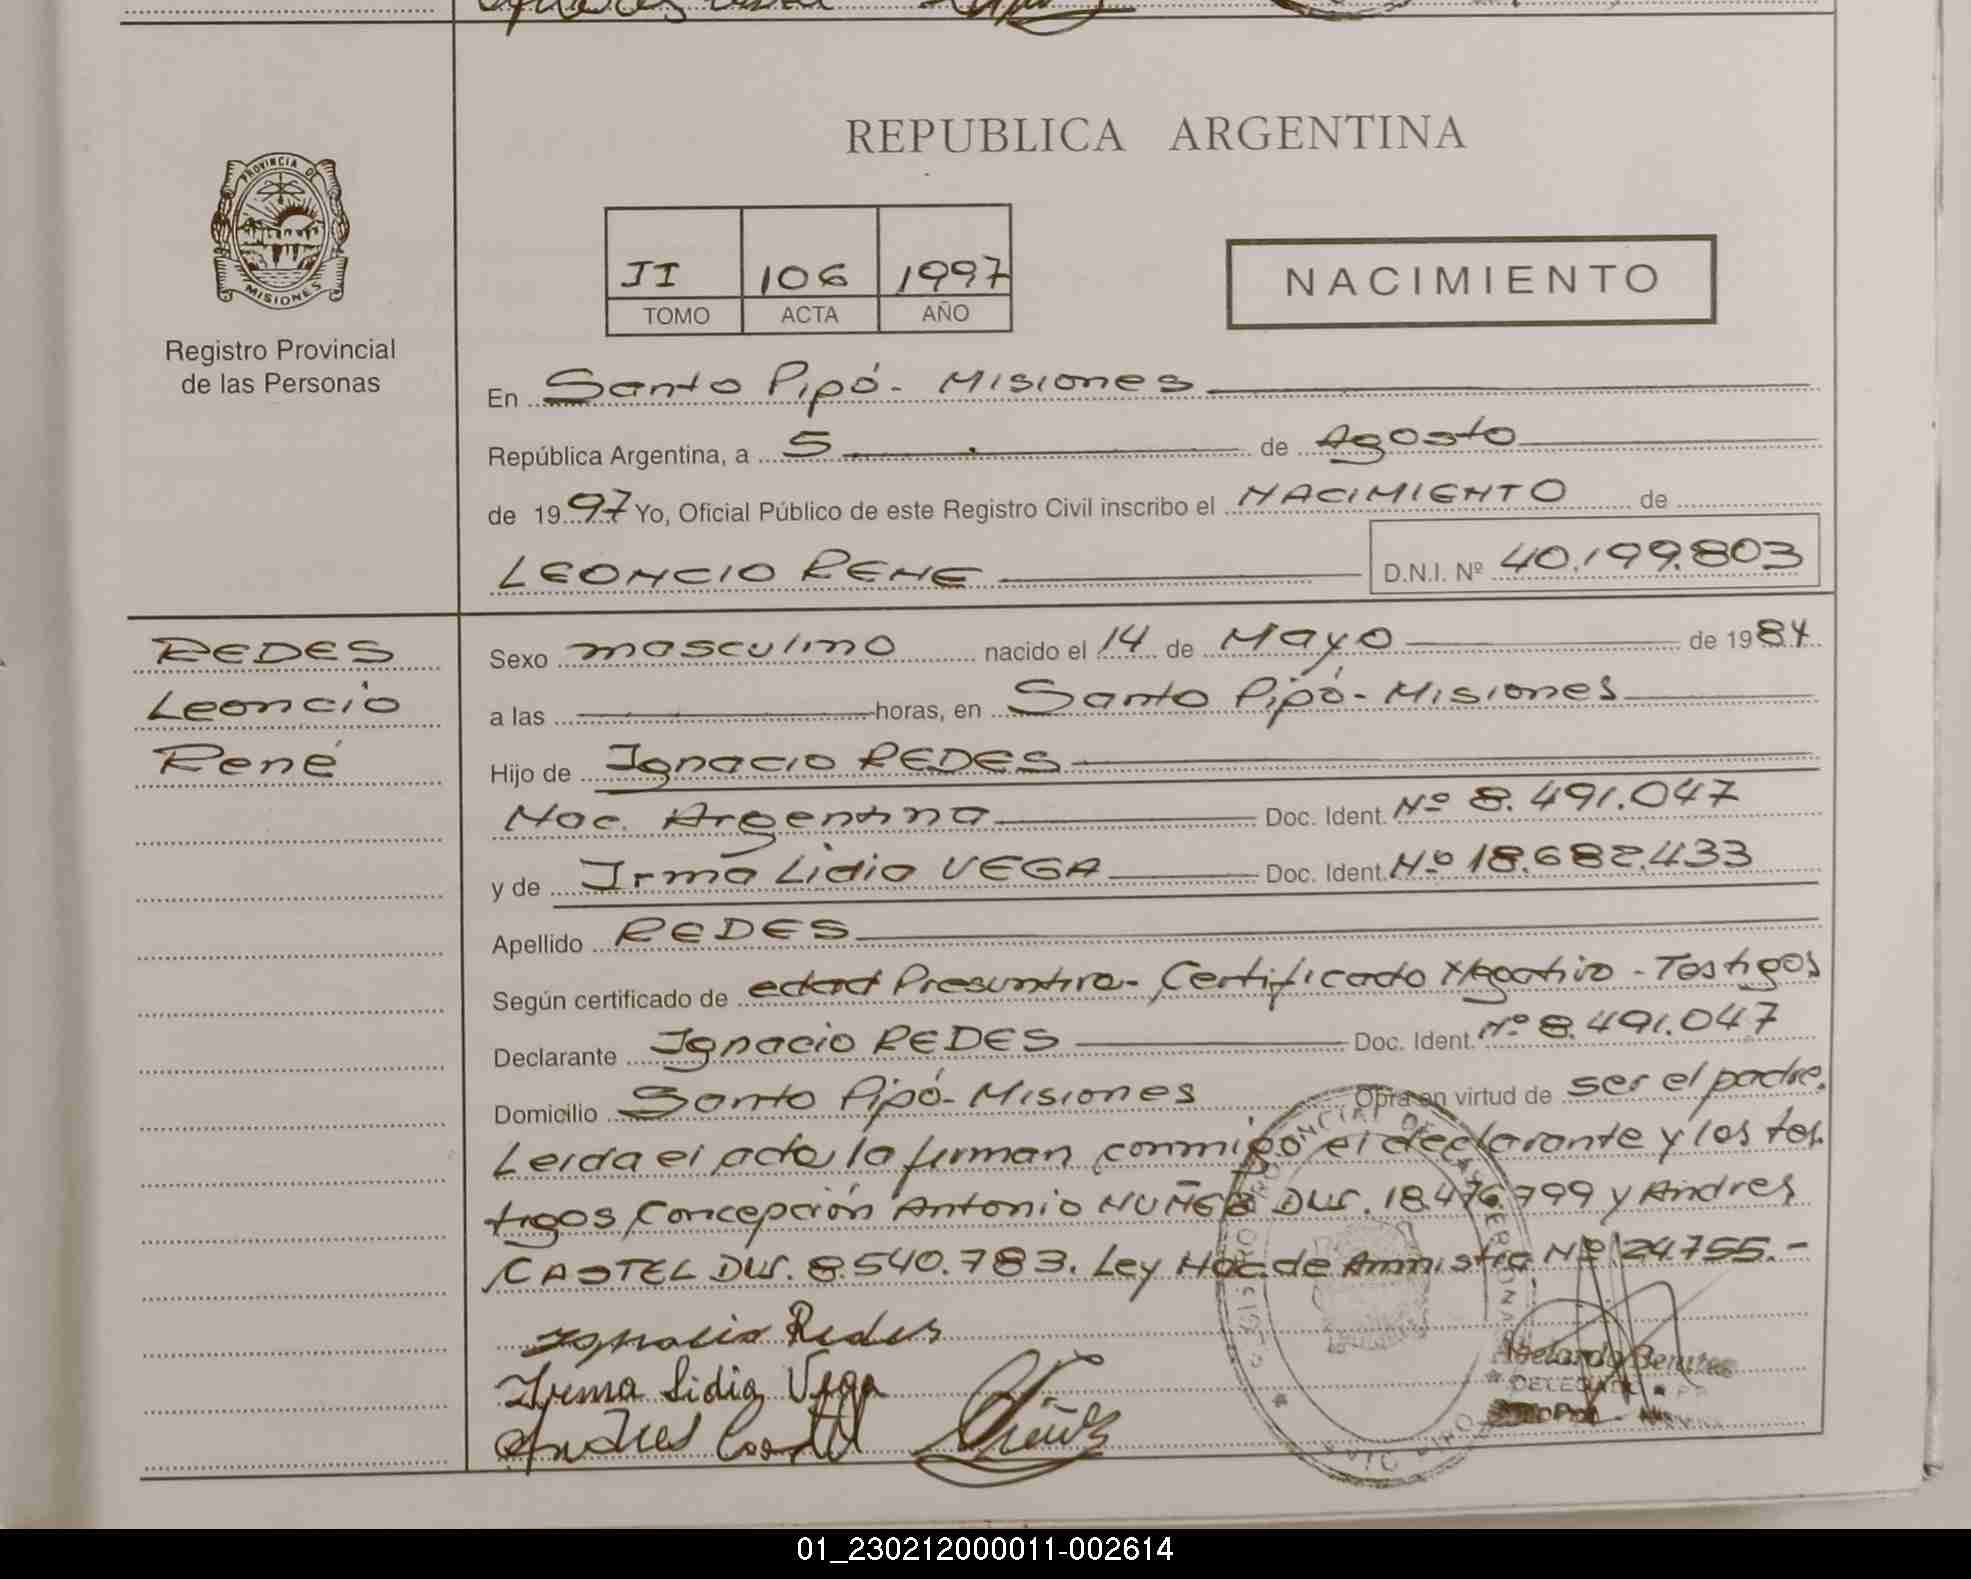 REPUBLICA ARGENTINA
PROVINCIA DE
MISIONES
Registro Provincial
de las Personas
II 106 1997
TOMO ACTA AÑO
NACIMIENTO
En Santo Pipó - Misiones
República Argentina, a 5 de Agosto
de 1997 Yo, Oficial Público de este Registro Civil inscribo el NACIMIENTO de
LEONCIO RENE D.N.I. Nº 40.199.803
REDES
Leoncio
René
Sexo masculino nacido el 14 de Mayo de 1984
a las horas, en Santo Pipó - Misiones
Hijo de Ignacio REDES
Nac. Argentina Doc. Ident. Nº 8.491.047
y de Irma Lidia VEGA Doc. Ident. Nº 18.682.433
Apellido REDES
Según certificado de edad Presuntiva - Certificado Negativo - Testigos
Declarante Ignacio REDES Doc. Ident. Nº 8.491.047
Domicilio Santo Pipó - Misiones Obra en virtud de ser el padre.
Leida el acta la firman conmigo el declarante y los tes
tigos Concepción Antonio NUÑEZ DNI. 18.476.799 y Andres
CASTEL DNI. 8.540.783. Ley Nac. de Amnistia Nº 24.755.-
Ignacio Redes
Irma Lidia Vega
Andres Castel Nuñez
Abelardo Benitez
DELEGADO
01_230212000011-002614